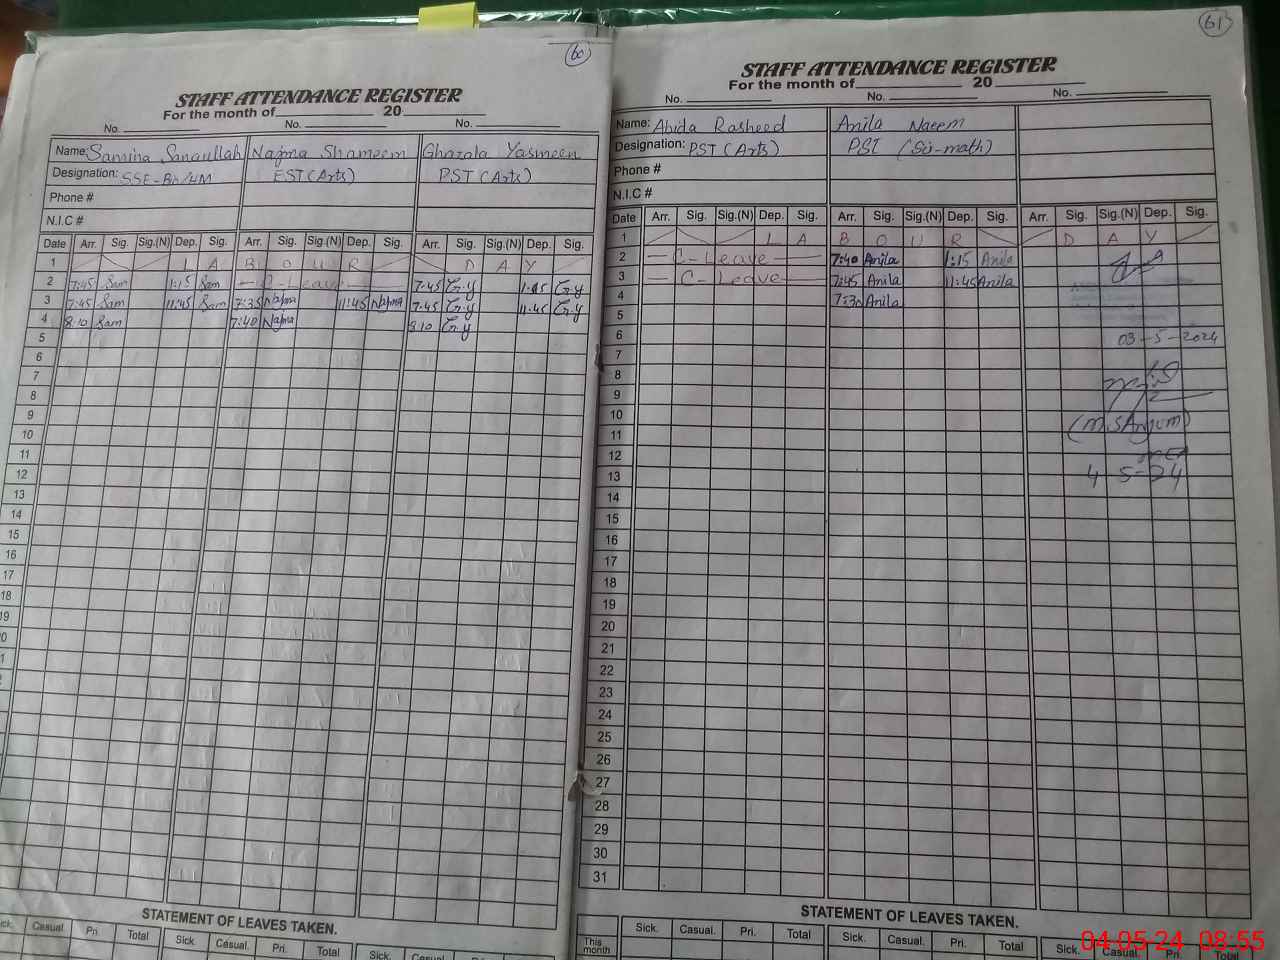 60
STAFF ATTENDANCE REGISTER
For the month of 20
No. No. No.
Name: Samina Sanaullah Najma Shameem Ghazala Yasmeen
Designation: EST (Arts) PST (Arts)
Phone #
N.I.C #
Date Arr. Sig. Sig.(N) Dep. Sig. Arr. Sig. Sig.(N) Dep. Sig. Arr. Sig. Sig.(N) Dep. Sig.
1 L A B O U R D A Y
2 7:45 Sam 1:15 Sam C-Leave 7:45 G.y 1:15 G.y
3 7:45 Sam 11:45 Sam 7:35 Najma 11:45 Najma 7:45 G.y 11:45 G.y
4 8:10 Sam 7:40 Najma 8:10 G.y
5
6
7
8
9
10
11
12
13
14
15
16
17
18
19
STATEMENT OF LEAVES TAKEN.
Casual. Pri. Total Sick. Casual. Pri. Total Sick. Casual.
61
STAFF ATTENDANCE REGISTER
For the month of 20
No. No. No.
Name: Abida Rasheed Anila Naeem
Designation: PST (Arts) PST (Sci-math)
Phone #
N.I.C #
Date Arr. Sig. Sig.(N) Dep. Sig. Arr. Sig. Sig.(N) Dep. Sig. Arr. Sig. Sig.(N) Dep. Sig.
1 L A B O U R D A Y
2 C-Leave 7:40 Anila 1:15 Anila
3 C-Leave 7:45 Anila 11:45 Anila
4 7:30 Anila
5
6 03-5-2024
7
8
9
10
11 (M.S Anjum)
12
13 4 5-24
14
15
16
17
18
19
20
21
22
23
24
25
26
27
28
29
30
31
STATEMENT OF LEAVES TAKEN.
Sick. Casual. Pri. Total Sick. Casual. Pri. Total Sick. Casual. Pri. Total
This month
04-05-24 08:55